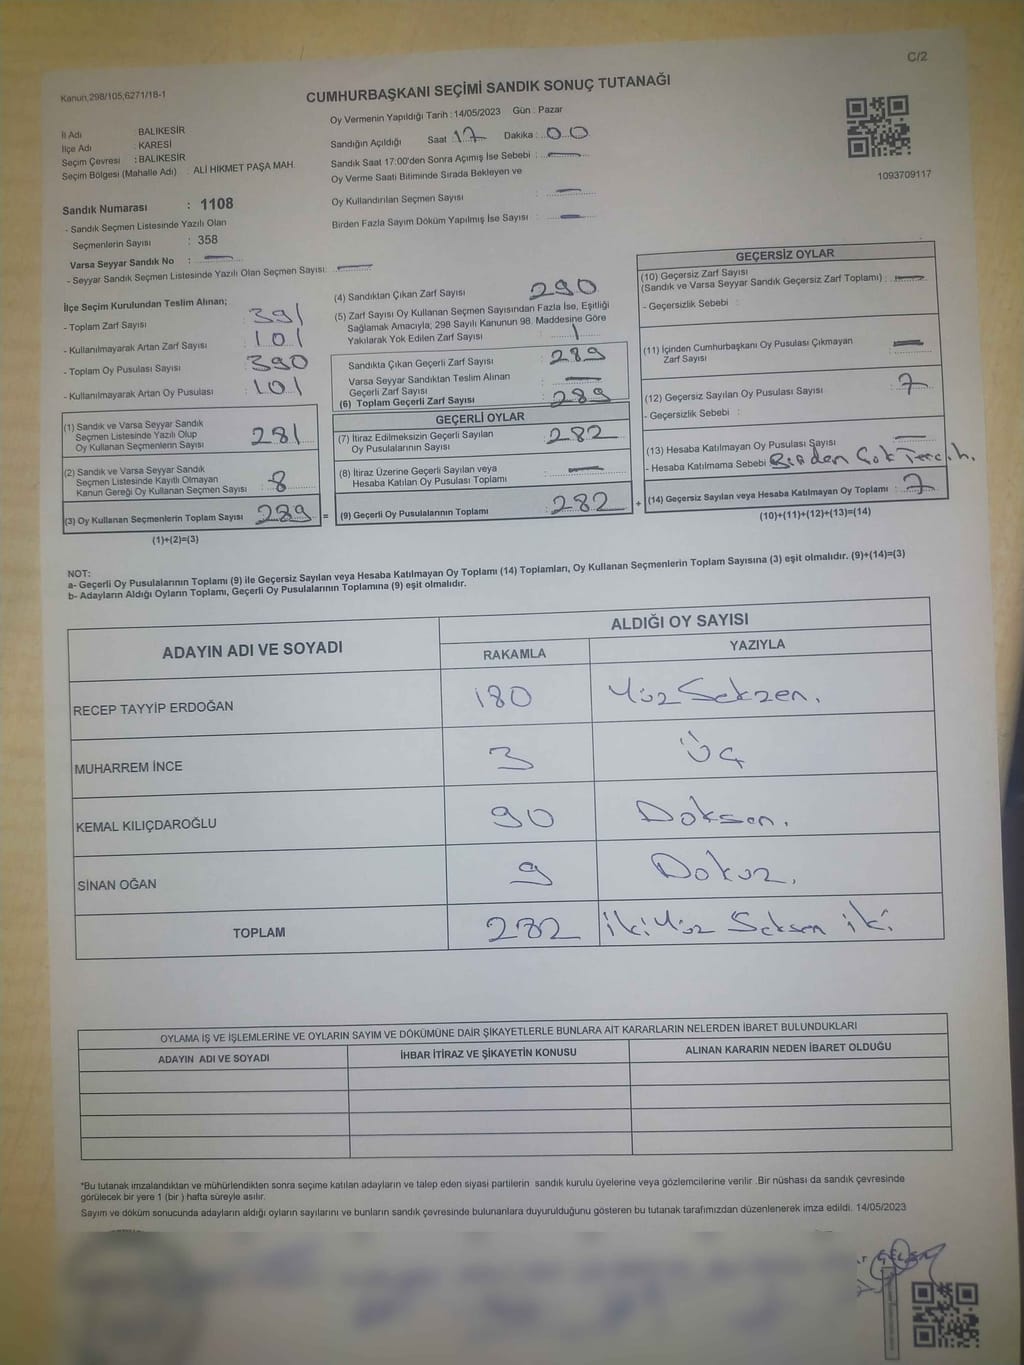 C/2
Kanun,298/105;6271/18-1
CUMHURBAŞKANI SEÇİMİ SANDIK SONUÇ TUTANAĞI
Oy Vermenin Yapıldığı Tarih : 14/05/2023 Gün : Pazar
İl Adı : BALIKESİR
İlçe Adı : KARESİ
Seçim Çevresi : BALIKESİR
Seçim Bölgesi (Mahalle Adı) : ALİ HİKMET PAŞA MAH.
Sandığın Açıldığı Saat : 17 Dakika : 00
Sandık Saat 17:00'den Sonra Açımış İse Sebebi : —
Oy Verme Saati Bitiminde Sırada Bekleyen ve
Oy Kullandırılan Seçmen Sayısı : —
Birden Fazla Sayım Döküm Yapılmış İse Sayısı : —
1093709117
Sandık Numarası : 1108
- Sandık Seçmen Listesinde Yazılı Olan
Seçmenlerin Sayısı : 358
Varsa Seyyar Sandık No : —
- Seyyar Sandık Seçmen Listesinde Yazılı Olan Seçmen Sayısı: —
İlçe Seçim Kurulundan Teslim Alınan;
- Toplam Zarf Sayısı : 391
- Kullanılmayarak Artan Zarf Sayısı : 101
- Toplam Oy Pusulası Sayısı : 390
- Kullanılmayarak Artan Oy Pusulası : 101
(1) Sandık ve Varsa Seyyar Sandık
Seçmen Listesinde Yazılı Olup
Oy Kullanan Seçmenlerin Sayısı 281
(2) Sandık ve Varsa Seyyar Sandık
Seçmen Listesinde Kayıtlı Olmayan
Kanun Gereği Oy Kullanan Seçmen Sayısı : 8
(3) Oy Kullanan Seçmenlerin Toplam Sayısı 289 =
(1)+(2)=(3)
(4) Sandıktan Çıkan Zarf Sayısı : 290
(5) Zarf Sayısı Oy Kullanan Seçmen Sayısından Fazla İse, Eşitliği
Sağlamak Amacıyla; 298 Sayılı Kanunun 98. Maddesine Göre
Yakılarak Yok Edilen Zarf Sayısı : 1
Sandıkta Çıkan Geçerli Zarf Sayısı : 289
Varsa Seyyar Sandıktan Teslim Alınan
Geçerli Zarf Sayısı : —
(6) Toplam Geçerli Zarf Sayısı : 289
GEÇERLİ OYLAR
(7) İtiraz Edilmeksizin Geçerli Sayılan
Oy Pusulalarının Sayısı : 282
(8) İtiraz Üzerine Geçerli Sayılan veya
Hesaba Katılan Oy Pusulası Toplamı : —
(9) Geçerli Oy Pusulalarının Toplamı : 282 +
GEÇERSİZ OYLAR
(10) Geçersiz Zarf Sayısı
(Sandık ve Varsa Seyyar Sandık Geçersiz Zarf Toplamı) : —
- Geçersizlik Sebebi :
(11) İçinden Cumhurbaşkanı Oy Pusulası Çıkmayan
Zarf Sayısı : —
(12) Geçersiz Sayılan Oy Pusulası Sayısı : 7
- Geçersizlik Sebebi :
(13) Hesaba Katılmayan Oy Pusulası Sayısı : —
- Hesaba Katılmama Sebebi Birden Çok Tercih.
(14) Geçersiz Sayılan veya Hesaba Katılmayan Oy Toplamı : 7
(10)+(11)+(12)+(13)=(14)
NOT:
a- Geçerli Oy Pusulalarının Toplamı (9) ile Geçersiz Sayılan veya Hesaba Katılmayan Oy Toplamı (14) Toplamları, Oy Kullanan Seçmenlerin Toplam Sayısına (3) eşit olmalıdır. (9)+(14)=(3)
b- Adayların Aldığı Oyların Toplamı, Geçerli Oy Pusulalarının Toplamına (9) eşit olmalıdır.
ADAYIN ADI VE SOYADI ALDIĞI OY SAYISI
RAKAMLA YAZIYLA
RECEP TAYYİP ERDOĞAN 180 Yüz Seksen.
MUHARREM İNCE 3 Üç
KEMAL KILIÇDAROĞLU 90 Doksan.
SİNAN OĞAN 9 Dokuz.
TOPLAM 282 İki Yüz Seksen iki
OYLAMA İŞ VE İŞLEMLERİNE VE OYLARIN SAYIM VE DÖKÜMÜNE DAİR ŞİKAYETLERLE BUNLARA AİT KARARLARIN NELERDEN İBARET BULUNDUKLARI
ADAYIN ADI VE SOYADI İHBAR İTİRAZ VE ŞİKAYETİN KONUSU ALINAN KARARIN NEDEN İBARET OLDUĞU
*Bu tutanak imzalandıktan ve mühürlendikten sonra seçime katılan adayların ve talep eden siyasi partilerin sandık kurulu üyelerine veya gözlemcilerine verilir .Bir nüshası da sandık çevresinde
görülecek bir yere 1 (bir ) hafta süreyle asılır.
Sayım ve döküm sonucunda adayların aldığı oyların sayılarını ve bunların sandık çevresinde bulunanlara duyurulduğunu gösteren bu tutanak tarafımızdan düzenlenerek imza edildi. 14/05/2023